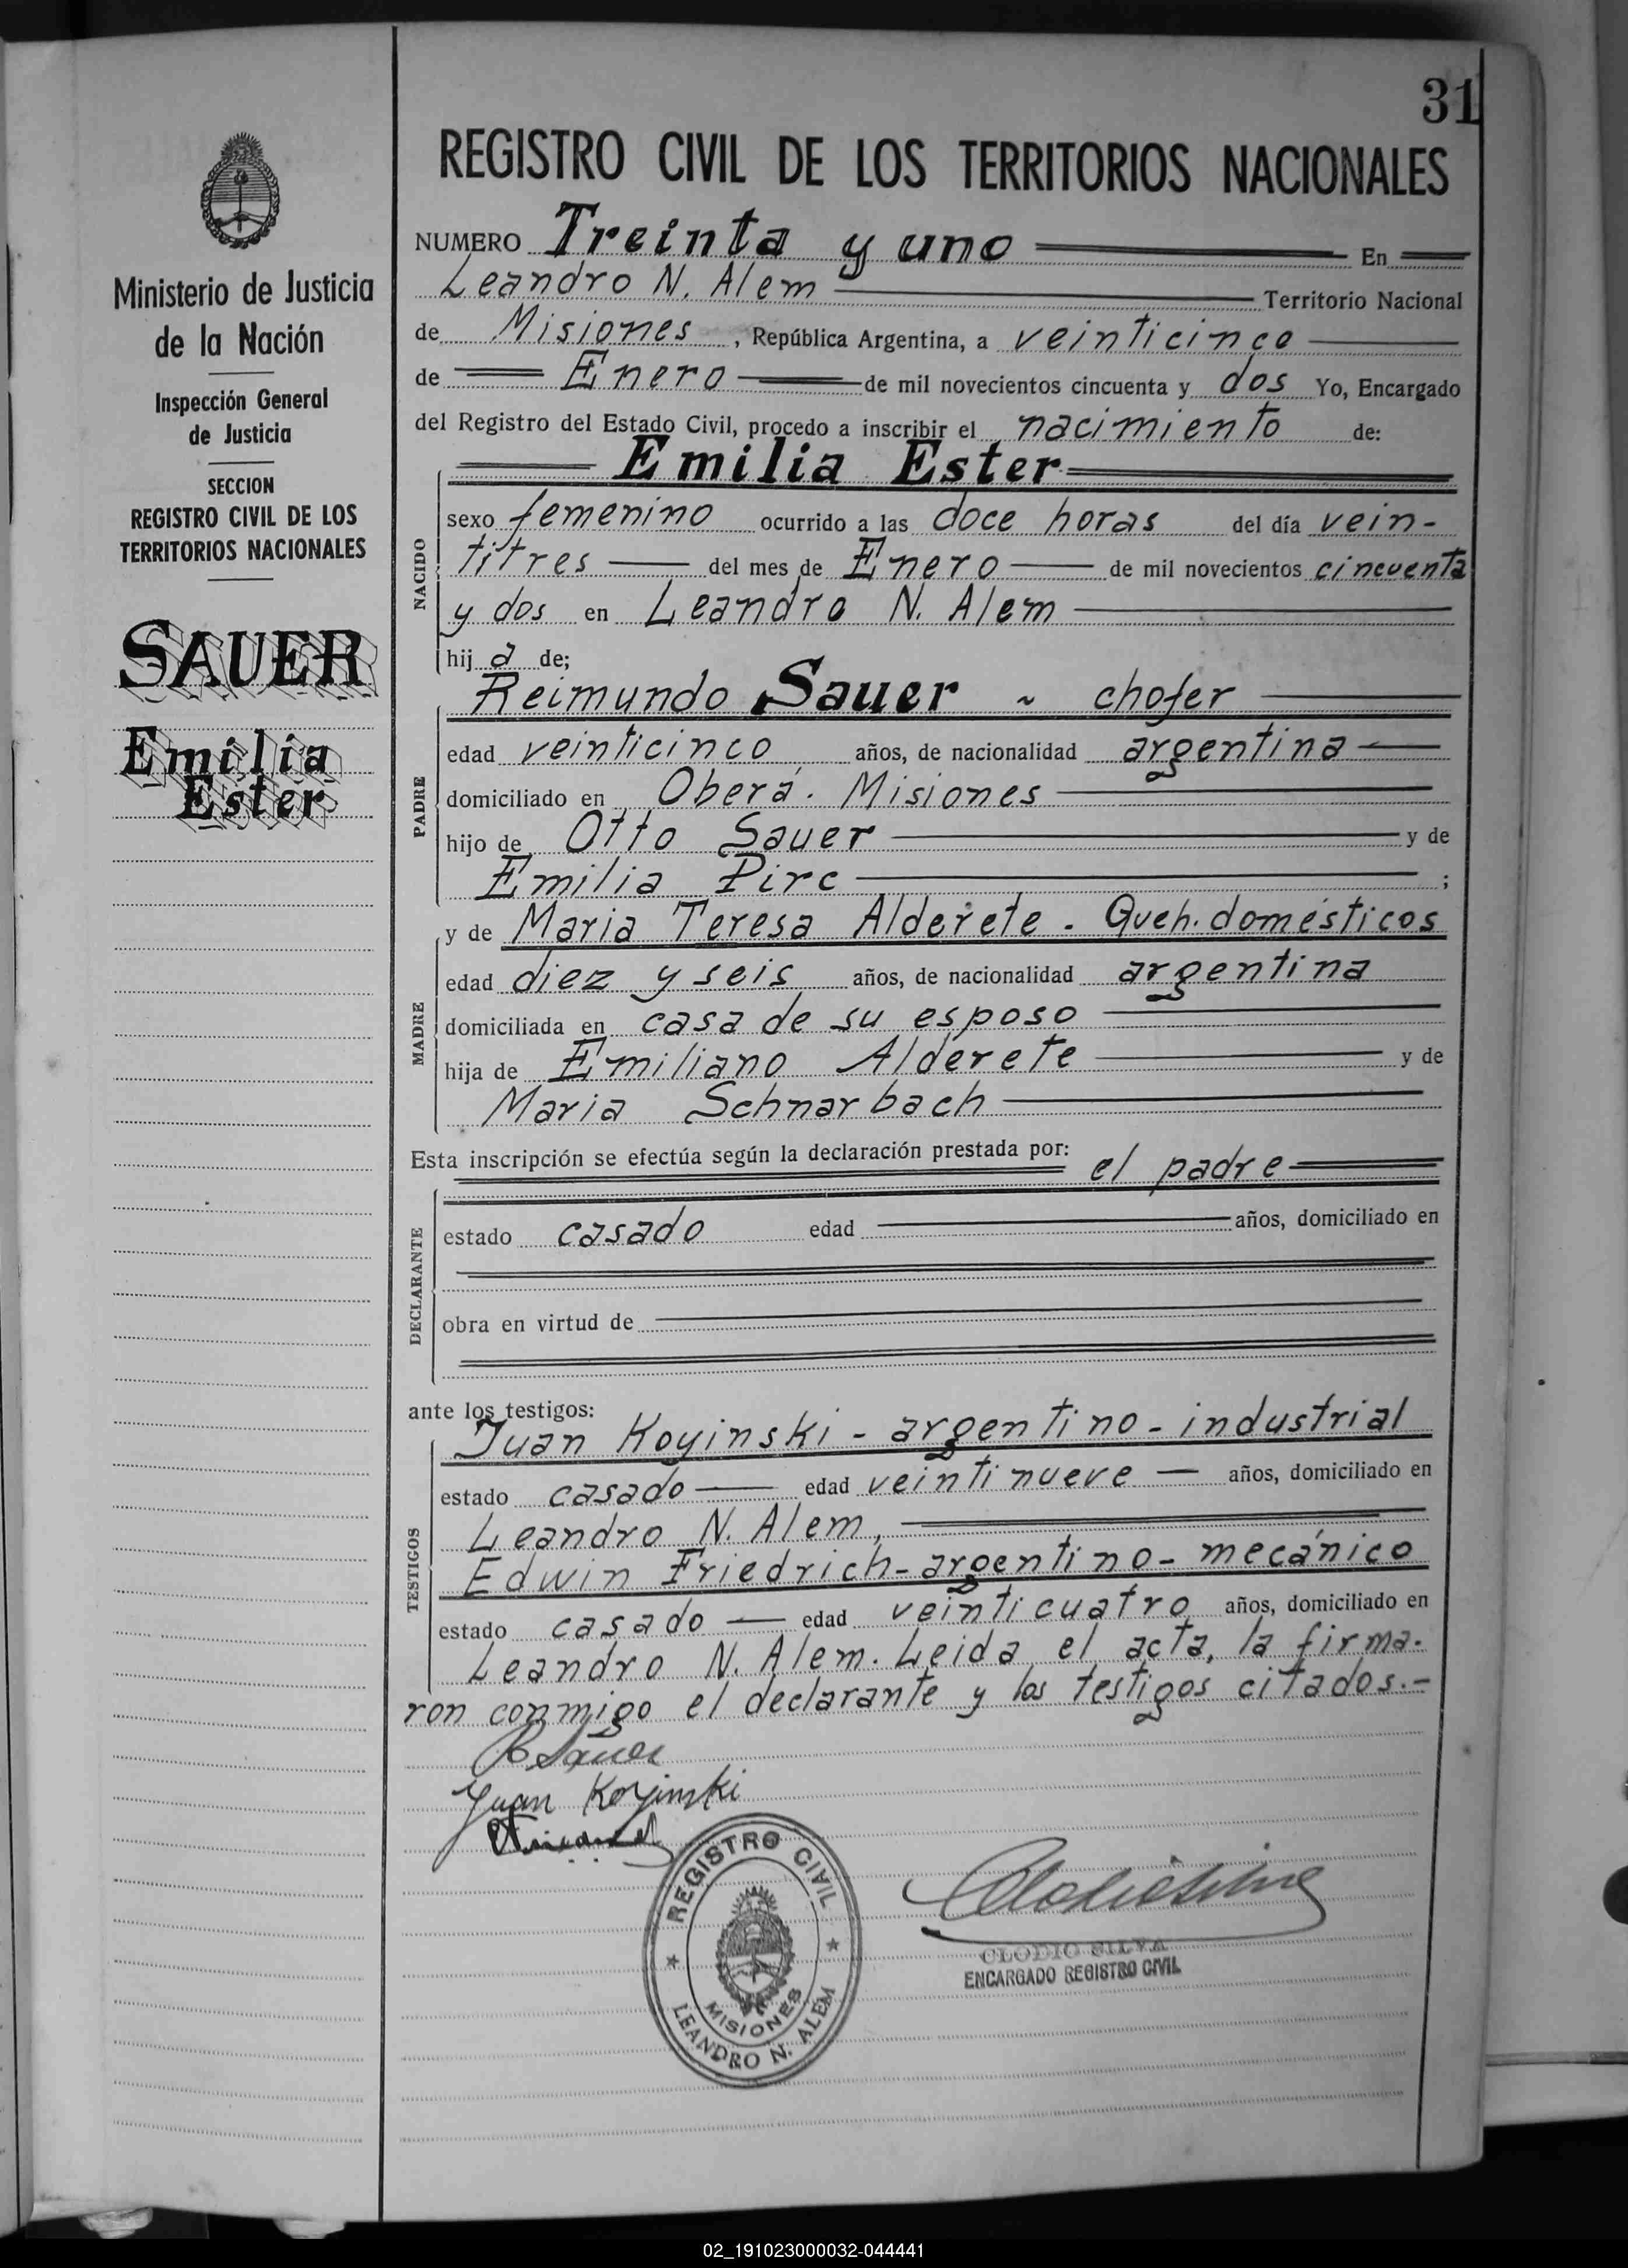 31
Ministerio de Justicia
de la Nación
Inspección General
de Justicia
SECCION
REGISTRO CIVIL DE LOS
TERRITORIOS NACIONALES
SAUER
Emilia
Ester
REGISTRO CIVIL DE LOS TERRITORIOS NACIONALES
NUMERO Treinta y uno En
Leandro N. Alem Territorio Nacional
de Misiones, República Argentina, a veinticinco
de Enero de mil novecientos cincuenta y dos Yo, Encargado
del Registro del Estado Civil, procedo a inscribir el nacimiento de:
Emilia Ester
NACIDO
sexo femenino ocurrido a las doce horas del día vein-
titres del mes de Enero de mil novecientos cincuenta
y dos en Leandro N. Alem
hij a de;
Reimundo Sauer ~ chofer
PADRE
edad veinticinco años, de nacionalidad argentina
domiciliado en Oberá. Misiones
hijo de Otto Sauer y de
Emilia Pirc ;
y de Maria Teresa Alderete - Queh. domésticos
MADRE
edad diez y seis años, de nacionalidad argentina
domiciliada en casa de su esposo
hija de Emiliano Alderete y de
Maria Schnarbach
Esta inscripción se efectúa según la declaración prestada por: el padre
DECLARANTE
estado casado edad años, domiciliado en
obra en virtud de
ante los testigos:
Juan Koyinski - argentino - industrial
TESTIGOS
estado casado edad veintinueve años, domiciliado en
Leandro N. Alem,
Edwin Friedrich - argentino - mecánico
estado casado edad veinticuatro años, domiciliado en
Leandro N. Alem. Leida el acta, la firma-
ron conmigo el declarante y los testigos citados.-
R Sauer
Juan Koyinski
REGISTRO CIVIL
MISIONES
LEANDRO N. ALEM
CLODIO SILVA
ENCARGADO REGISTRO CIVIL
02_191023000032-044441